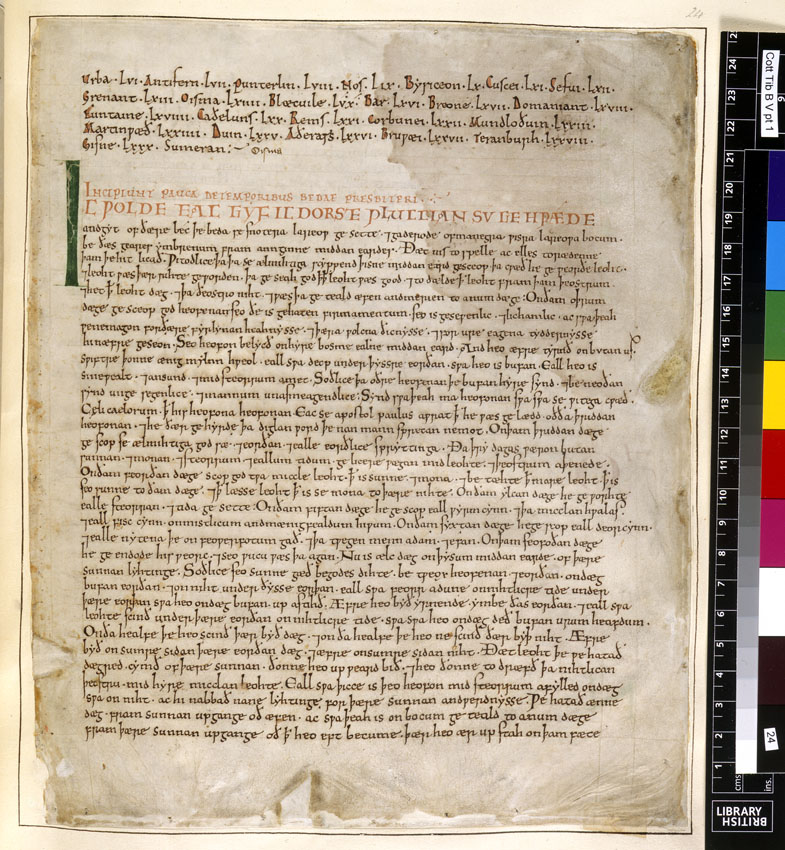 24
Urba · lvi · Antifern · lvii · punterlin · lviii · Nos · lix · Byriceon · lx · Cuscei · lxi · Sefui · lxii ·
Grenant · lxiii · Oisma · lxiiii · Blæcuile · lxv · Bar · lxvi · Breone · lxvii · Domaniant · lxviii ·
Funtaine · lxviiii · Cadeluns · lxx · Rems · lxxi · Corbunei · lxxii · Mundloduin · lxxiii ·
Martinƿæð · lxxiiii · Duin · lxxv · Aderats · lxxvi · Bruƿæi · lxxvii · Teranburh · lxxviii ·
Gisne · lxxx · Sumeran :
INCIPIUNT PAUCA DE TEMPORIBUS BEDAE PRESBITERI
IC ǷOLDE EAC GYF IC DORSTE PLUCCIAN SU GEHǷÆDE
andgyt of ðære bec þe beda se snotera lareop ge sette · ⁊ gaderode of manegra ƿisra lareoƿa bocum ·
be ðæs geares ymbrenum fram annginne middan eardes · Ðæt nis to spelle ac elles to rædenne
þam þe hit licað · Ƿitodlice þa þa se ælmihtiga scyppend þisne middan eard gesceop þa cƿæð he ge ƿeorðe leoht ·
⁊ leoht ƿæs þær rihte geƿorden · þa ge seah god þæt leoht ƿæs good · ⁊ to dælde þæt leoht fram þam þeostrum ·
⁊ het þæt leoht dæg · ⁊ þa ðeostro niht · ⁊ ƿæs þa ge teald æfen and merien to anum dæge : On ðam oþrum
dæge ge sceop god heofenan seo ðe is gehaten firmamentum · seo is geseƿenlic · ⁊ lichamlic · ac sƿa þeah
ƿe ne magon for ðære fyrlynan heahnysse · ⁊ þæra ƿolcna ðicnysse · ⁊ for ure eagena tyddernysse
hi næfre geseon · Seo heofon belycð on hyre bosme ealne middan eard · And heo æfre tyrnð onbutan us ·
sƿiftre þonne ænig mylen hƿeol · eall sƿa deop under þyssre eorðan · sƿa heo is bufan · Eall heo is
sinepealt · ⁊ ansund · ⁊ mid steorrum amet · Soðlice þa oðre heofenan þe bufan hyre synd · ⁊ be neoðan
synd unge segenlice · ⁊ mannum unasmeagendlice · Synd sƿa þeah ma heofonan sƿa sƿa se ƿitega cƿæð ·
Celi caelorum · þæt is heofona heofonan · Eac se apostol paulus aƿrat þæt he ƿæs ge læd oð ða þriddan
heofonan · ⁊ he ðær ge hyrde þa diglan ƿord þe nan mann sprecan ne mot · On þam þriddan dæge
ge sceop se ælmihtiga god sæ · ⁊ eorðan · ⁊ ealle eorðlice sprytinga · Ða þry dagas ƿæron butan
sunnan · ⁊ monan · ⁊ steorrum · ⁊ eallum tidum · ge licere ƿægan mid leohte · ⁊ þeostrum aþenede ·
On ðam feorðan dæge sceop god tƿa miccle leoht · þæt is sunne · ⁊ mona · ⁊ be tæhte þæt mare leoht · þæt is
seo sunne to ðam dæge · ⁊ þæt læsse leoht þæt is se mona to þære nihte · On ðam ylcan dæge he ge ƿorhte
ealle steorran · ⁊ tida ge sette · On ðam fiftan dæge he ge sceop eall ƿyrm cynn · ⁊ þa micclan hƿalas ·
⁊ eall fisc cynn · on mistlicum and mænigfealdum hiƿum · On ðam syxtan dæge he ge sceop eall deor cynn ·
⁊ ealle nytena þe on feoƿer fotum gað · ⁊ þa tƿegen menn adam · ⁊ efan · On þam seofoðan dæge
he ge endode his ƿeorc · ⁊ seo ƿucu ƿæs þa agan · Nu is ælc dæg on þysum middan earde · of þære
sunnan lyhtinge · Soðlice seo sunne gæð be godes dihte · be tƿeox heofenan · ⁊ eorðan · on dæg
bufan eorðan · ⁊ on niht under ðysse eorþan · eall sƿa feorr adune on nihtlicre tide under
þære eorþan sƿa heo on dæg bufan up astihð · Æfre heo byð yrnende ymbe ðas eorðan · ⁊ eall sƿa
leohte scinð under þære eorðan on nihtlicre tide · sƿa sƿa heo on dæg deð bufan urum heafdum ·
On ða healfe þe heo scinð þær byð dæg · ⁊ on ða healfe þe heo ne scinð ðær byþ niht · Æfre
byð on sumre sidan þære eorðan dæg · ⁊ æfre on sumre sidan niht · Ðæt leoht þe ƿe hatað
dægred · cymð of þære sunnan · ðonne heo up ƿeard bið · ⁊ heo ðonne to dræfð þa nihtlican
þeostru · mid hyre micclan leohte · Eall sƿa þicce is þeo heofon mid steorrum afylled on dæg
sƿa on niht · ac hi nabbað nane lyhtinge for þære sunnan andƿerdnysse · Ƿe hatað ænne
dæg · fram sunnan upgange oð æfen · ac sƿa þeah is on bocum ge teald to anum dæge
fram þære sunnan upgange oð þæt heo eft becume þær heo ær up stah on þam fæce
Cott Tib B V pt 1
24
cms
ins.
BRITISH
LIBRARY